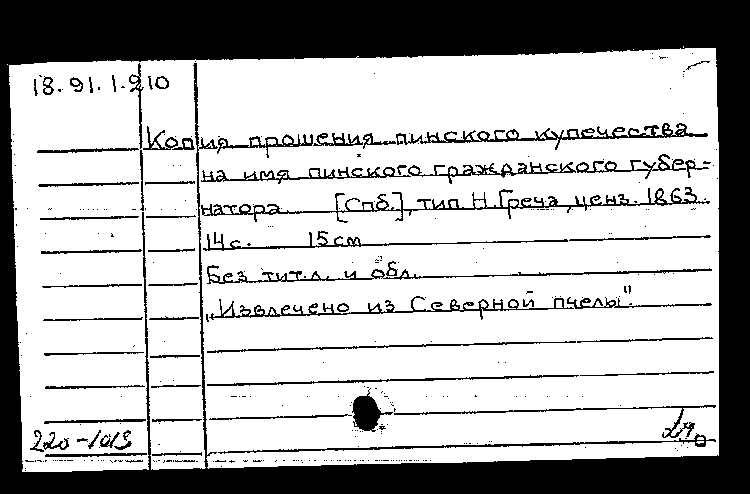 18.91.1.210
Копия прошения пинского купечества
на имя пинского гражданского губер-
натора. [Спб.], тип. Н. Греча, ценз. 1863.
14 с. 15 см
Без тит. л. и обл.
„Извлечено из Северной пчелы".
220-1013